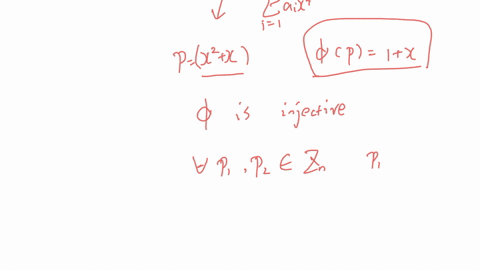 ↓ ∑ᵢ₌₁ aᵢxⁱ
p=(x²+x) ϕ(p) = 1+x
ϕ is injective
∀ p₁, p₂ ∈ ℤₙ p₁